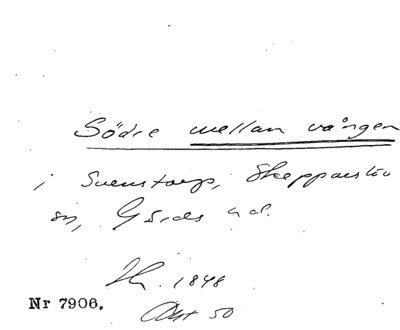 Södre mellan vången
i Svenstorp, Skepparslöv
sn, Gärds hd.
1848
Nr 7906.
50